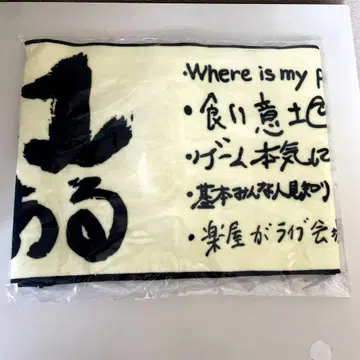 1
ある
・Where is my
・食い意地
・ゲーム本気に
・基本みんな人見知り
・楽屋がライブ会